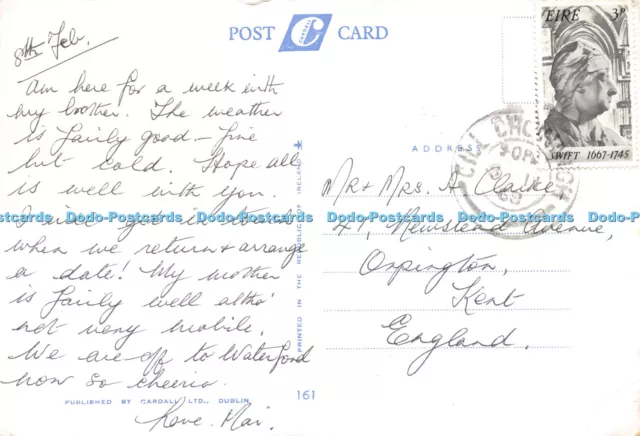 POST CARD
CARDALL
8th Feb.
Am here for a week with
my brother. The weather
is fairly good - fine
but cold. Hope all
is well with you.
I will you in
when we return & arrange
a date! My mother
is fairly well altho'
not very mobile.
We are off to Waterford
now so cheerio.
Love Mai.
PUBLISHED BY CARDALL LTD., DUBLIN.
161
PRINTED IN THE REPUBLIC OF IRELAND
ADDRESS
Mr + Mrs. A Clarke,
41, Newstead Avenue,
Orpington,
Kent
England.
EIRE 3p
SWIFT 1667-1745
Dodo-Postcards Dodo-Postcards Dodo-Postcards Dodo-Postcards Dodo-Postcards